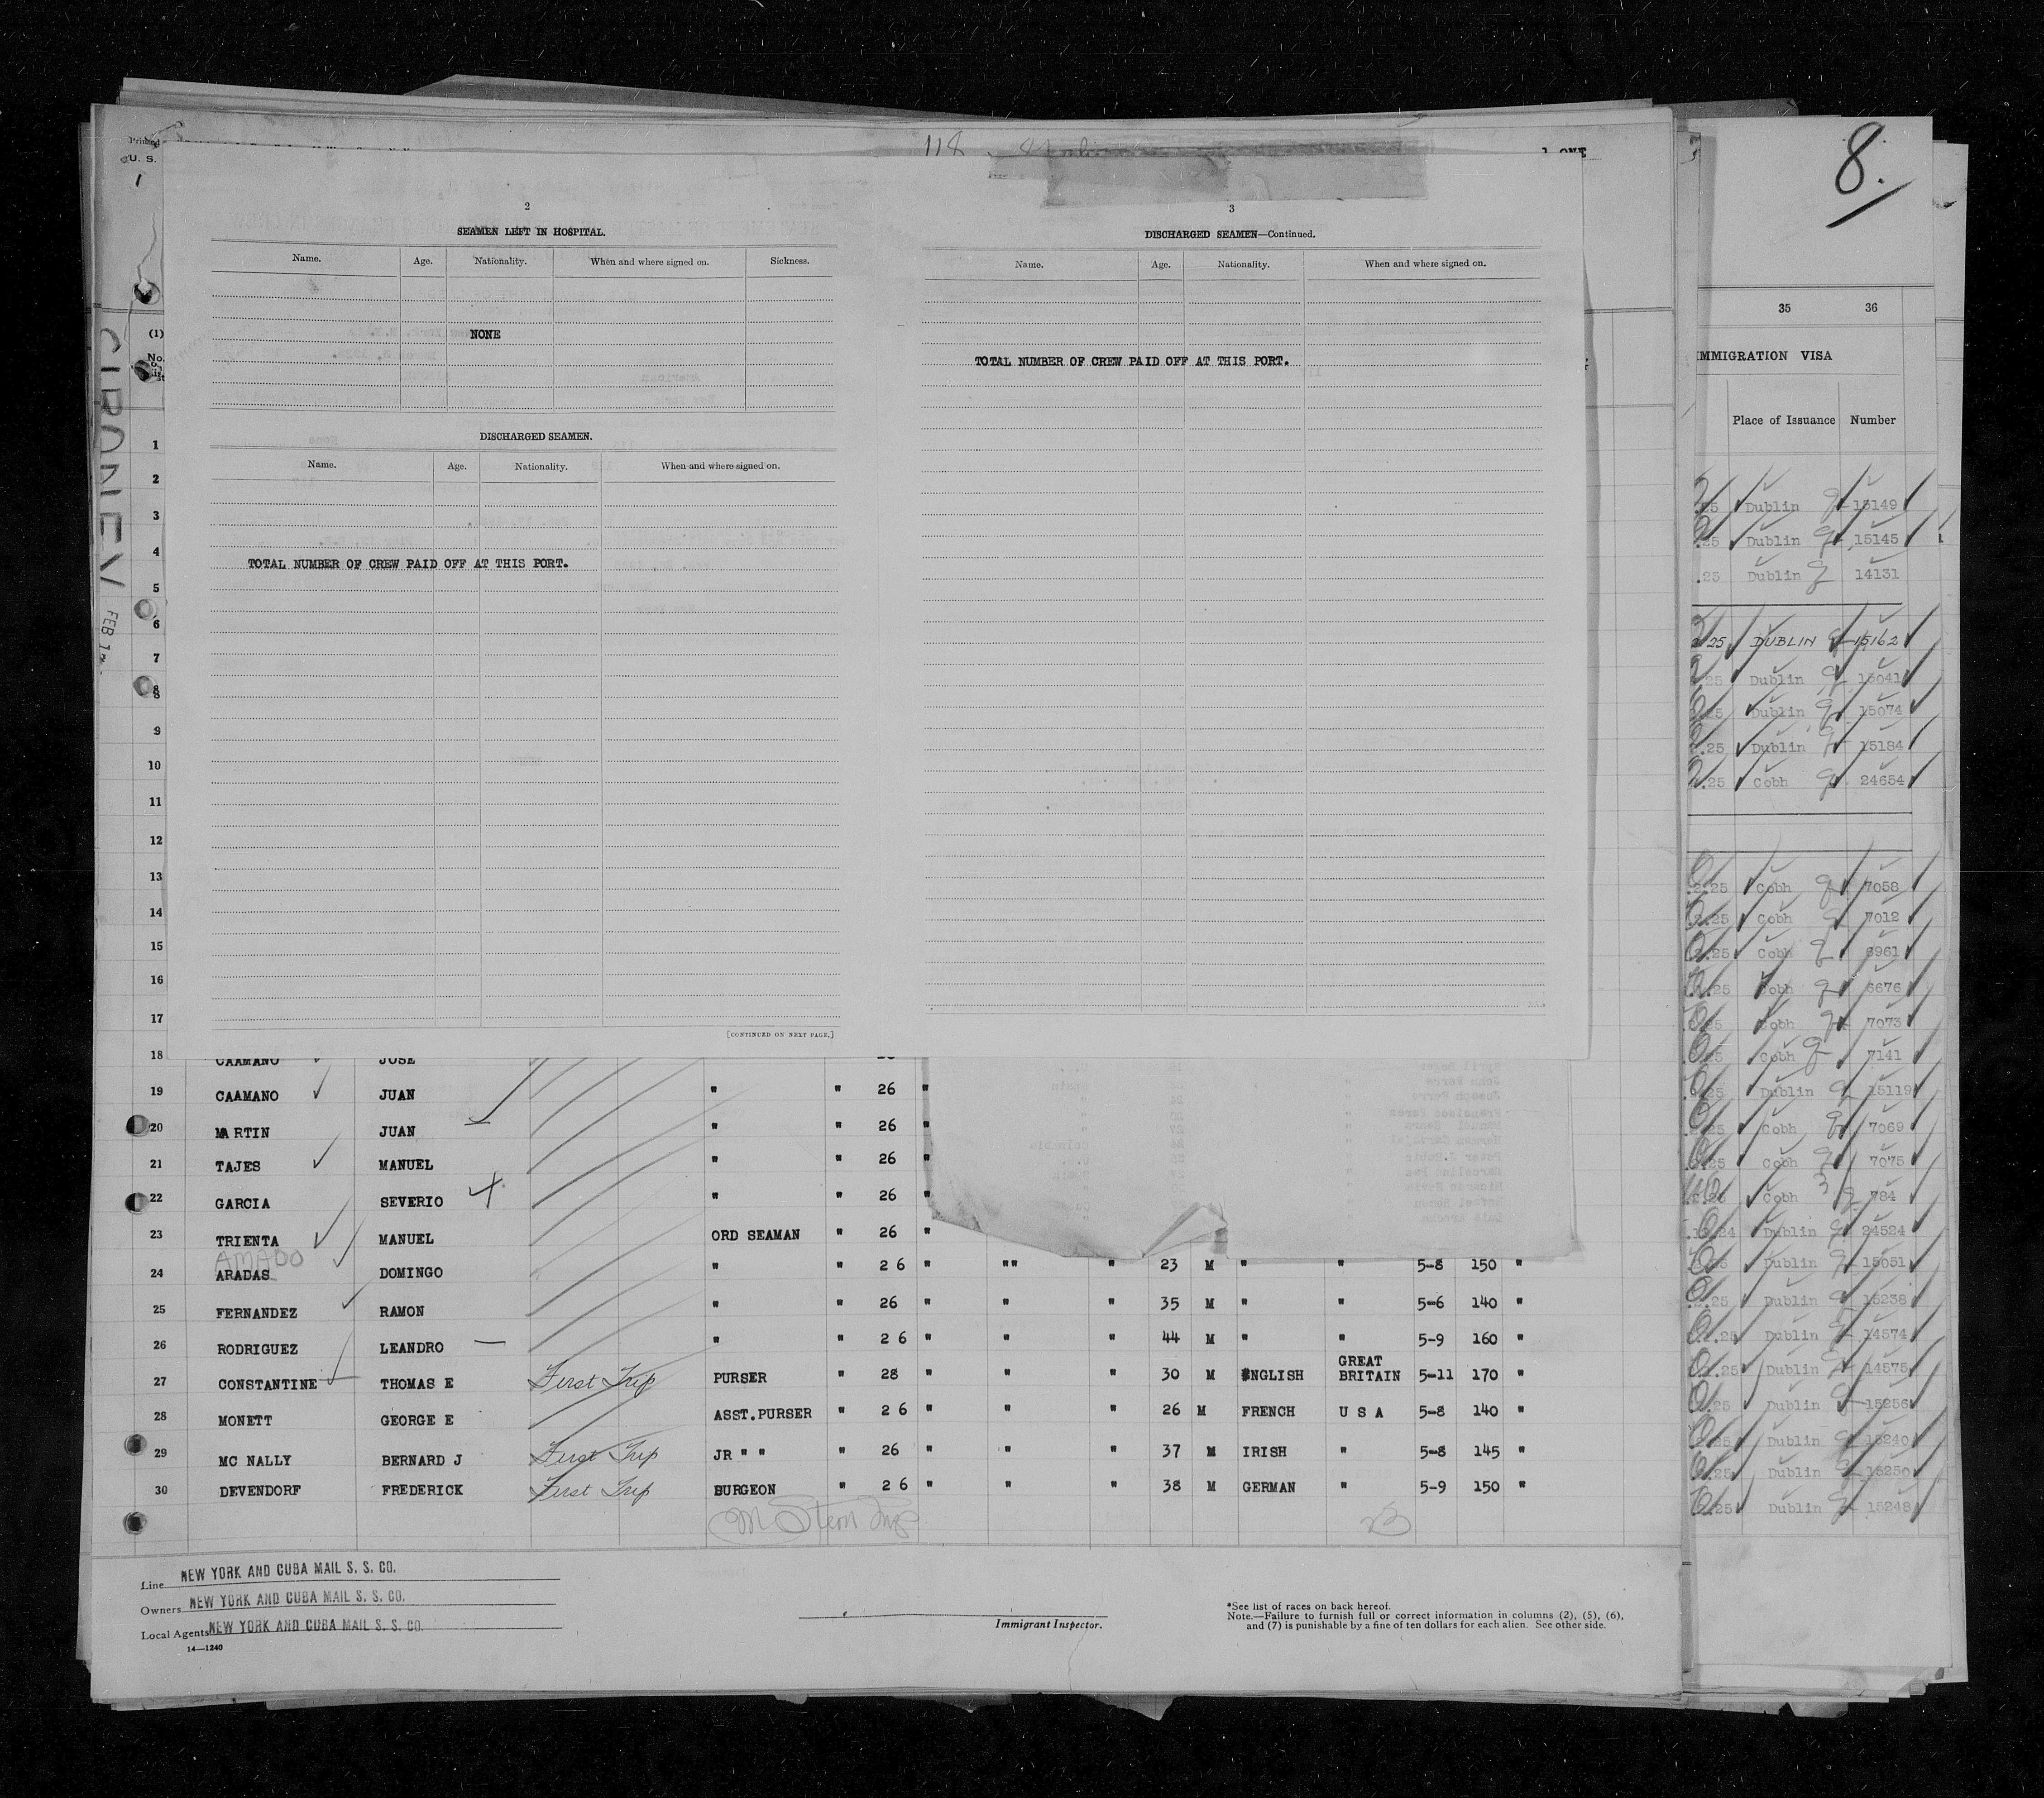 8.
118
2
SEAMEN LEFT IN HOSPITAL.
Name. Age. Nationality. When and where signed on. Sickness.
NONE
DISCHARGED SEAMEN.
Name. Age. Nationality. When and where signed on.
TOTAL NUMBER OF CREW PAID OFF AT THIS PORT.
[CONTINUED ON NEXT PAGE.]
3
DISCHARGED SEAMEN—Continued.
Name. Age. Nationality. When and where signed on.
TOTAL NUMBER OF CREW PAID OFF AT THIS PORT.
Printed
U. S.
1
(1)
No.
SIBONEY
FEB
1
2
3
4
5
6
7
8
9
10
11
12
13
14
15
16
17
18 CAAMANO JOSE
19 CAAMANO JUAN " " 26 "
20 MARTIN JUAN " " 26 "
21 TAJES MANUEL " " 26 "
22 GARCIA SEVERIO " " 26 "
23 TRIENTA MANUEL ORD SEAMAN " 26 "
AMADO
24 ARADAS DOMINGO " " 26 " "" " 23 M " " 5-8 150 "
25 FERNANDEZ RAMON " " 26 " " " 35 M " " 5-6 140 "
26 RODRIGUEZ LEANDRO — " " 26 " " " 44 M " " 5-9 160 "
27 CONSTANTINE THOMAS E First Trip PURSER " 28 " " " 30 M ENGLISH GREAT BRITAIN 5-11 170 "
28 MONETT GEORGE E ASST.PURSER " 26 " " " 26 M FRENCH U S A 5-8 140 "
29 MC NALLY BERNARD J First Trip JR " " " 26 " " " 37 M IRISH " 5-8 145 "
30 DEVENDORF FREDERICK First Trip SURGEON " 26 " " " 38 M GERMAN " 5-9 150 "
M Stern Insp
Line NEW YORK AND CUBA MAIL S. S. CO.
Owners NEW YORK AND CUBA MAIL S. S. CO.
Local Agents NEW YORK AND CUBA MAIL S. S. CO.
14—1240
Immigrant Inspector.
*See list of races on back hereof.
Note.—Failure to furnish full or correct information in columns (2), (5), (6),
and (7) is punishable by a fine of ten dollars for each alien. See other side.
35 36
IMMIGRATION VISA
Place of Issuance Number
25 Dublin 15149
25 Dublin 15145
.25 Dublin 14131
25 DUBLIN 15162
25 Dublin 15041
25 Dublin 15074
.25 Dublin 15184
.25 Cobh 24654
.25 Cobh 7058
.25 Cobh 7012
.25 Cobh 6961
.25 Cobh 6676
25 Cobh 7073
25 Cobh 7141
.25 Dublin 15119
25 Cobh 7069
.25 Cobh 7075
Cobh 784
24 Dublin 24524
Dublin 15051
.25 Dublin 15238
.25 Dublin 14574
.25 Dublin 14575
25 Dublin 15256
25 Dublin 15240
25 Dublin 15250
.25 Dublin 15248